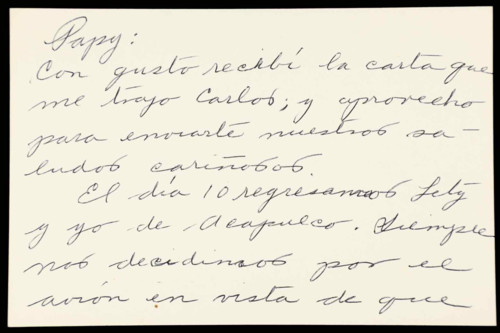 Papy:
Con gusto recibí la carta que
me trajo Carlos; y aprovecho
para enviarte nuestros sa-
ludos cariñosos.
El día 10 regresamos Lety
y yo de Acapulco. Siempre
nos decidimos por el
avión en vista de que